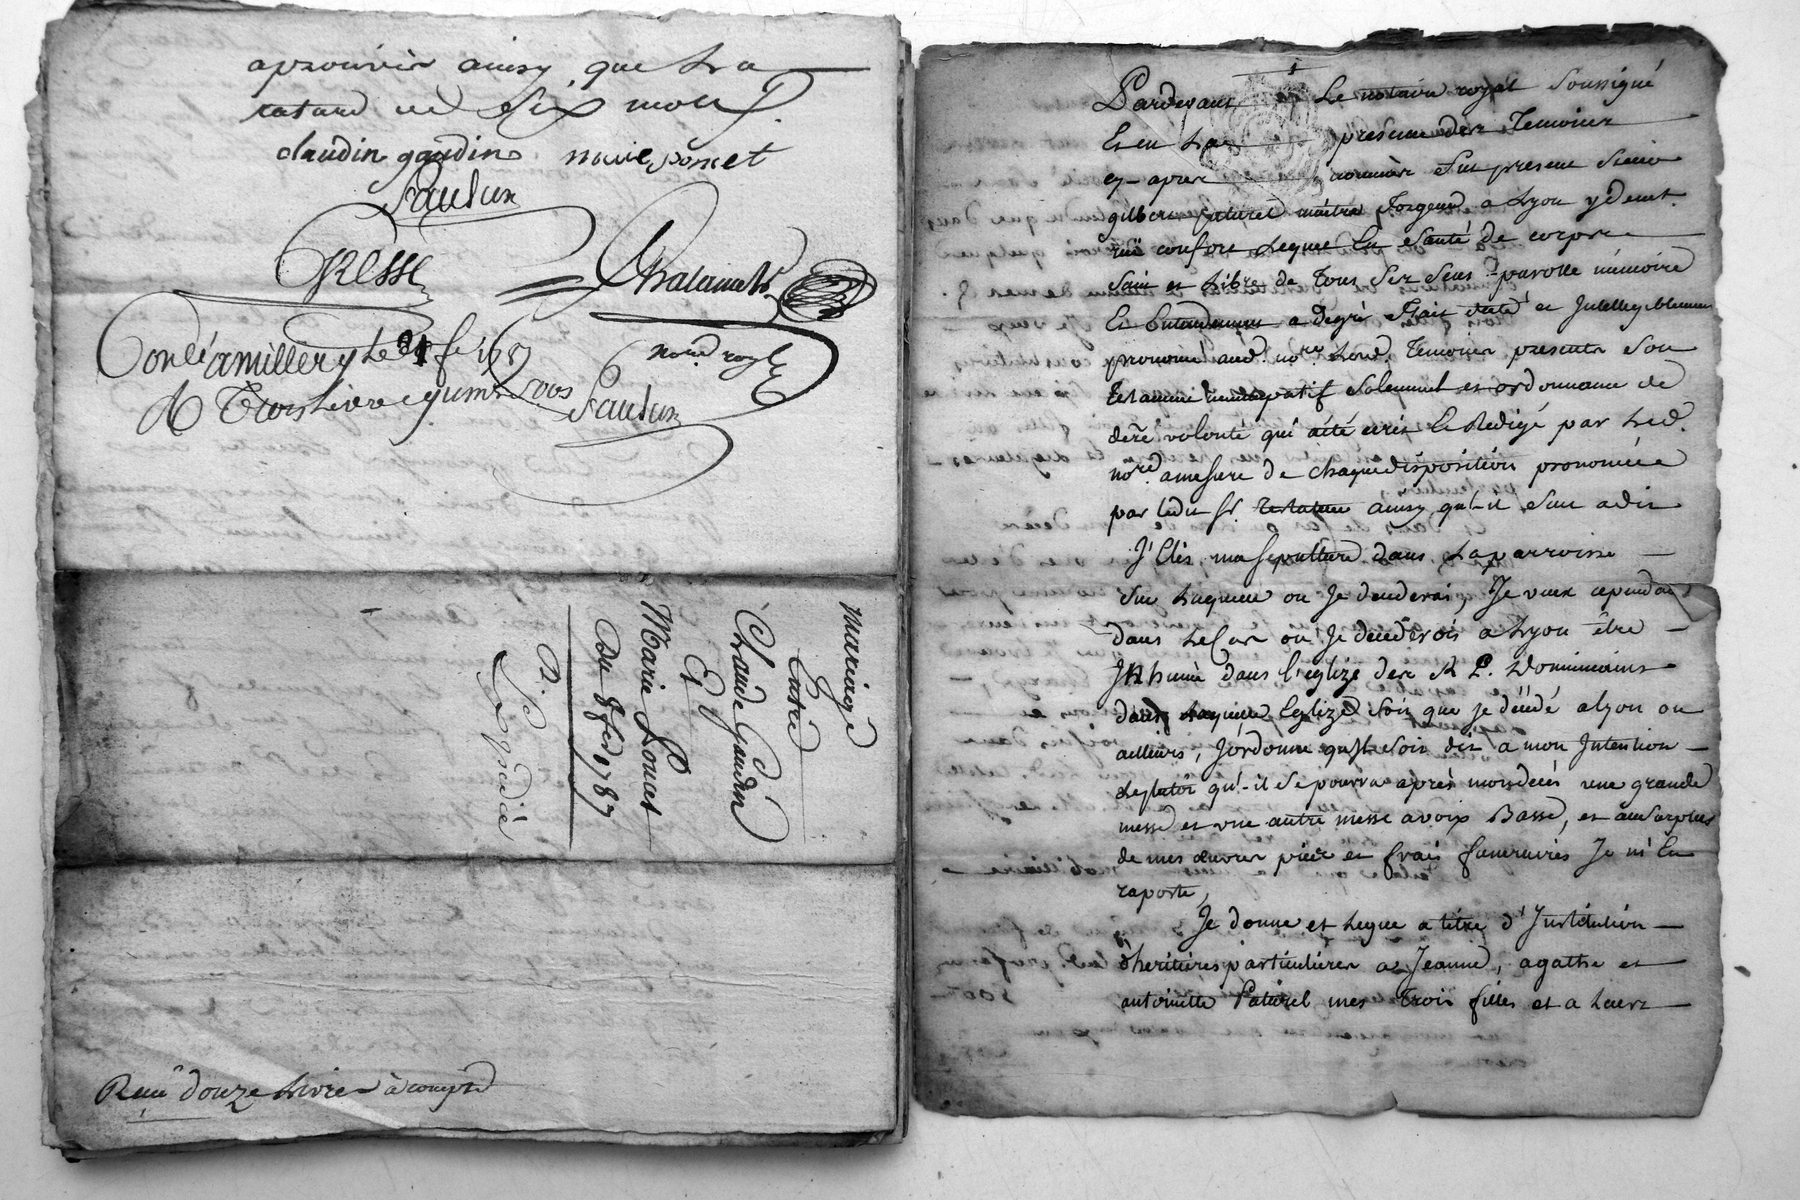 aprouvée ainsy que la
rature de six mots
claudin gaudin marie poncet
Paulun
GRESSE
Chalamel
nore. royl
Controlé à millery le 21 fe. 1787
R Trois livres quinze sous
Paulun
mariage
Entre
Claude Gaudin
Et
Marie Poncet
Du 8 fev 1787
R.
Expédié
Recu douze livres à compte
Pardevant le notaire royal soussigné
et en la presence des temoins
cy-apres nommés fut present sieur
gilbert paturel maitre Forgeur a Lyon y demt.
rüe confort lequel en santé de corps
sain et libre de tous ses sens parolle mémoire
et entendement a degré fait dicté et Intelligiblement
prononcé aud. nore. lesd. temoins presents son
testament nuncupatif solemnel et ordonnance de
dere volonté qui a été ecrit et Redigé par led.
nore. amesure de chaque disposition prononcée
par ledit sr. testateur ainsy qu'il suit adire
J'Elis ma sepulture dans la parroisse
sur laquelle ou Je decederai, Je veux cependant
dans le Cas ou Je decederois a Lyon être
Inhumé dans l'eglize des R P. Dominicains
dans laquelle Eglize soit que je décédé a lyon ou
ailleurs, J'ordonne qu'Il soit dit a mon Intention
le plutôt qu'il se pourra après mon décès une grande
messe et une autre messe a voix Basse, et au surplus
de mes œuvres pies et frais funeraires Je m'En
raporte,
Je donne et legue a titre d'Institution
d'heritieres particulieres a Jeanne, agathe et
antoinette Paturel mes trois filles et a leurs